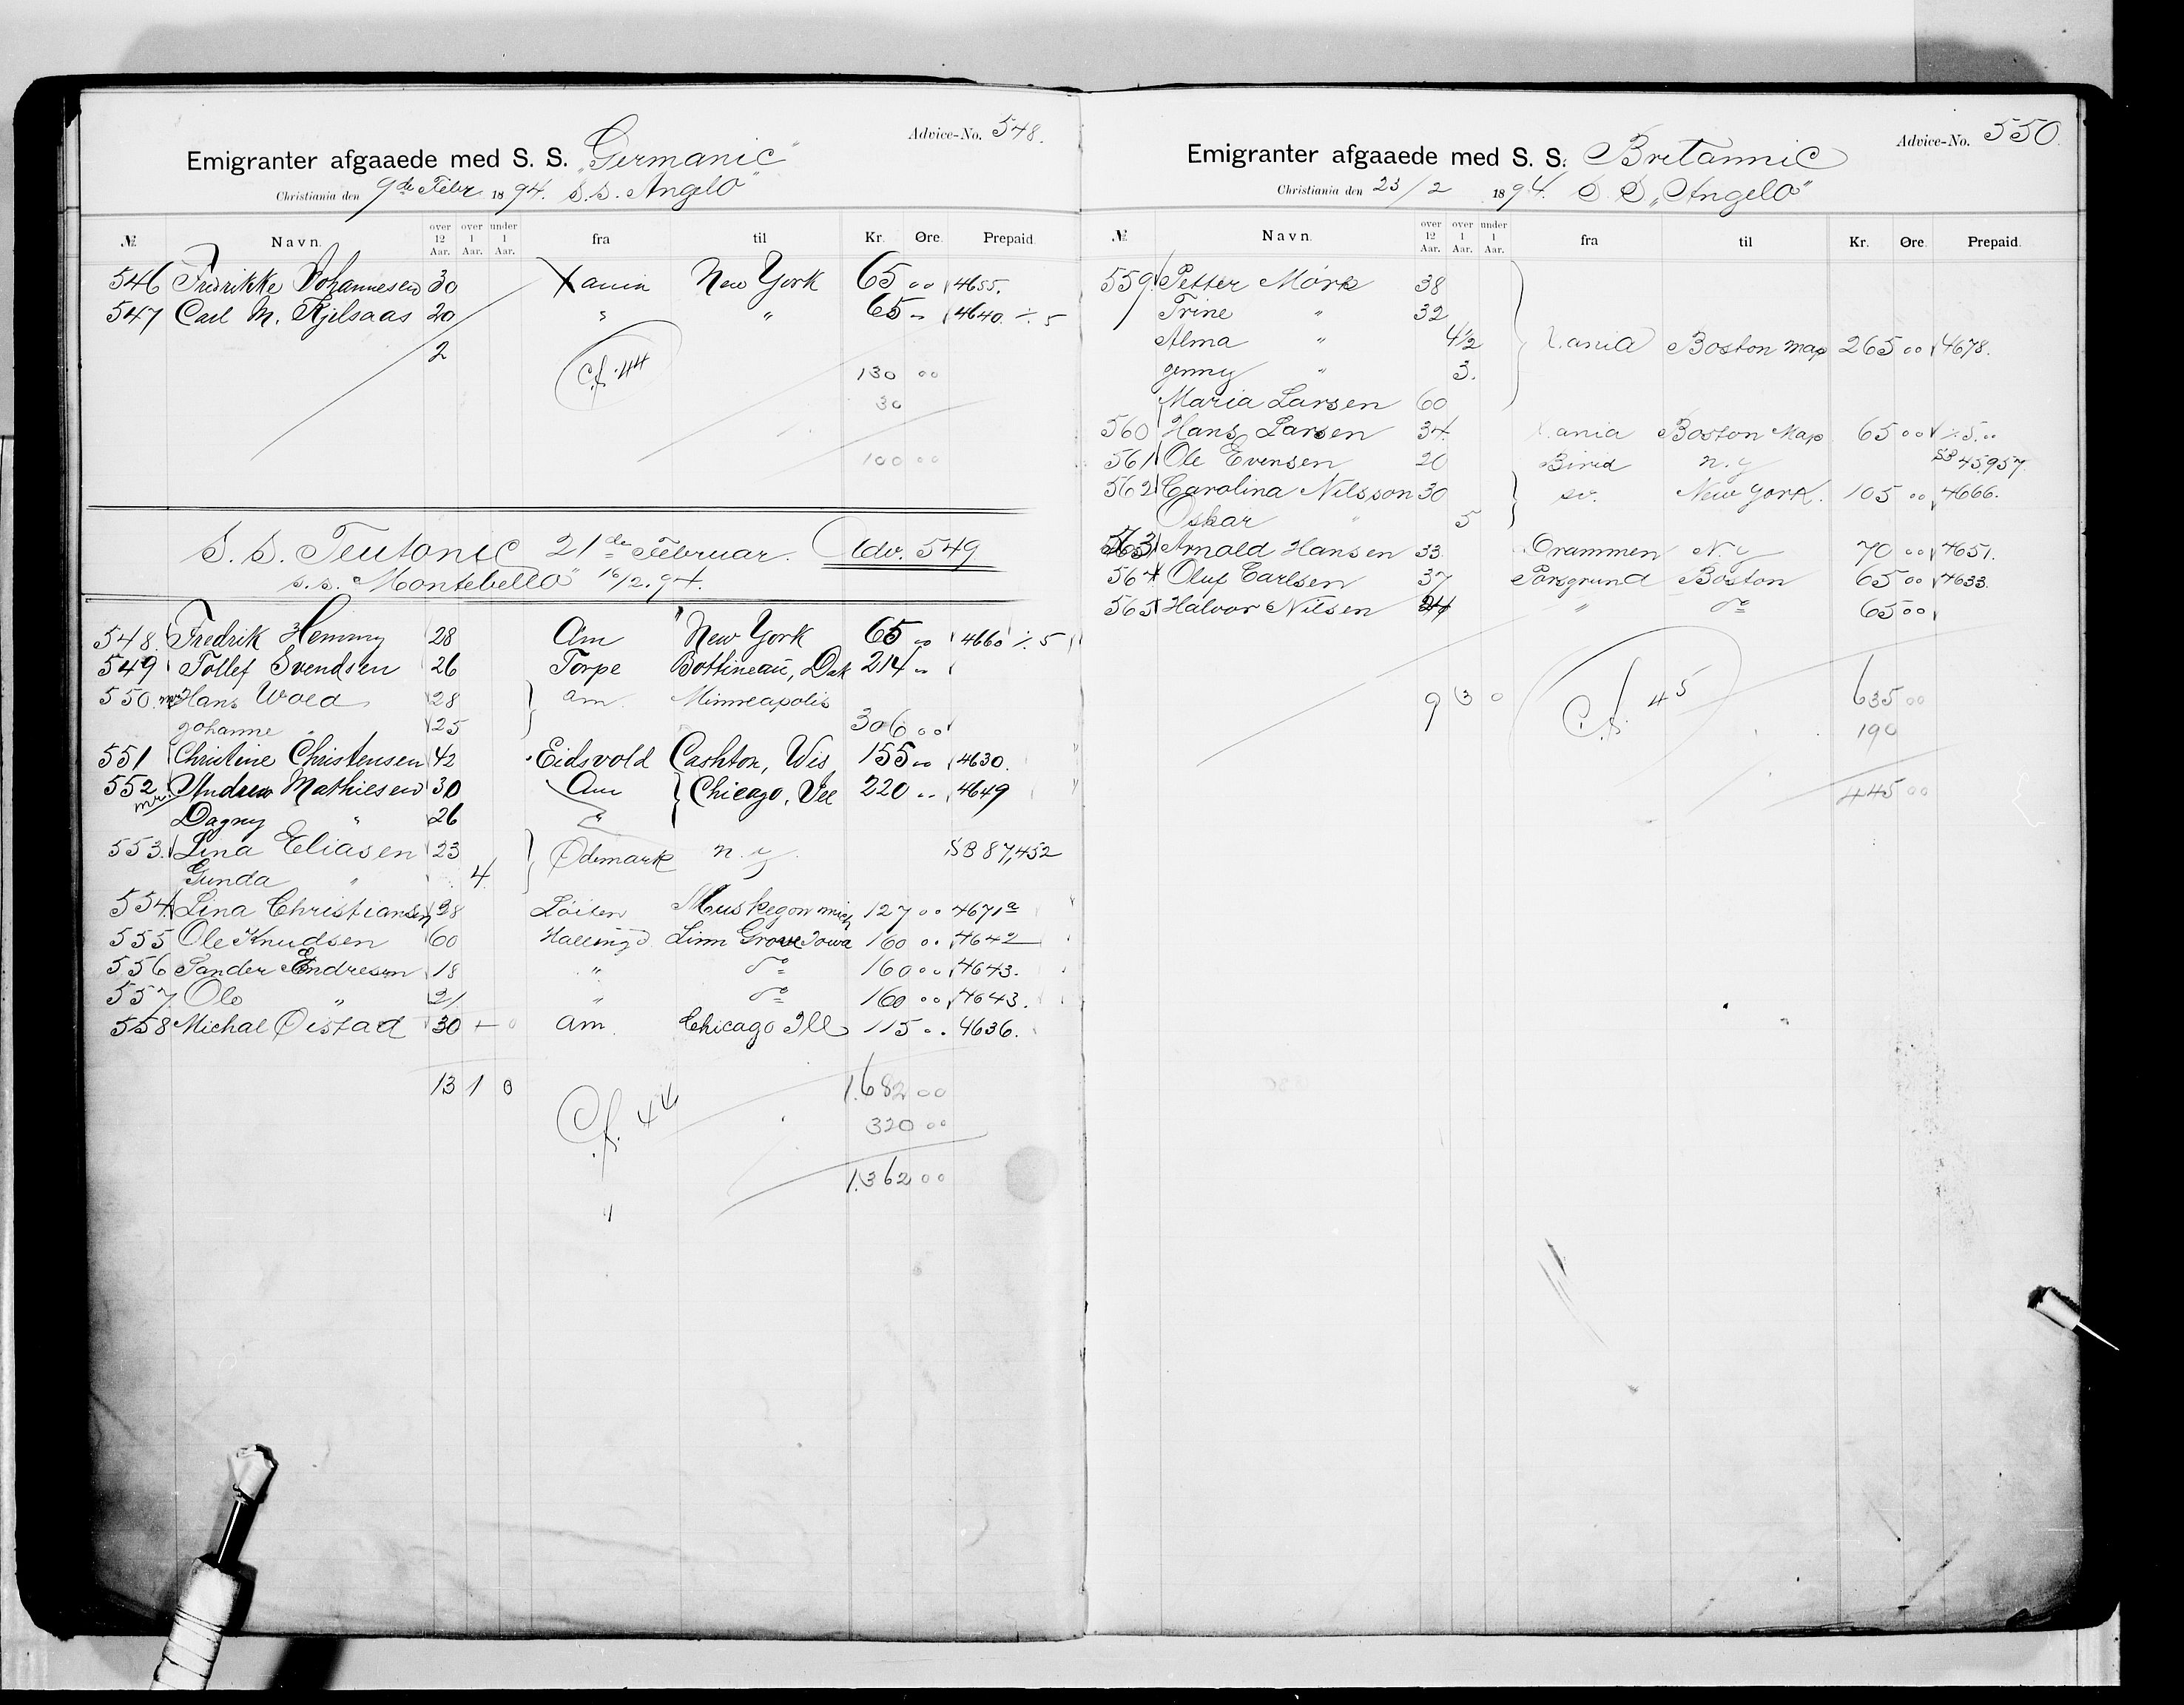 Advice-No. 548.
Emigranter afgaaede med S. S. "Germanic"
Christiania den 9de Febr. 1894. S.S. Angelo"
№ Navn. over 12 Aar. over 1 Aar. under 1 Aar. fra til Kr. Øre. Prepaid.
546 Fredrikke Johannesen 30 Xania New York 65 00 4655.
547 Carl M. Kjelsaas 20 " " 65 " 4640. ./. 5
2 Cf. 44
130 00
30
100 00
S. S. Teutonic 21de Februar. Adv. 549
S.S. Montebello" 16/2.94.
548. Fredrik Hemmy 28 Am New York 65 00 4660 ./. 5
549 Tollef Svendsen 26 Torpe Bottineau, Dak 214 "
550. Hans Wold 28 am. Minneapolis
Johanne " 25 306 00
551 Christine Christensen 42 Eidsvold Cashton, Wis 155 00 4630.
552 mr. Andrew Mathiesen 30 Am Chicago, Ill 220 .. 4649
Dagny " 26 "
553. Lina Eliasen 23 Ødemark n.y. SB 87,452
Gunda " 4
554 Lina Christiansen 28 Løiten Muskegon mich 127 00 4671a
555 Ole Knudsen 60 Hallingd. Linn Grove Iowa 160 00 4642
556 Sander Endresen 18 " do 160 00 4643.
557 Ole " 21 " do 160 00 4643.
558 Michal Øistad 30 am. Chicago Ill 115 .. 4636.
13 1 0 Cf. 44 1.682 00
320 00
1.362 00
Advice-No. 550.
Emigranter afgaaede med S. S. Britannic
Christiania den 23/2 1894. S. S. "Angelo"
№ Navn. over 12 Aar. over 1 Aar. under 1 Aar. fra til Kr. Øre. Prepaid.
559 Petter Mørk 38
Trine " 32
Alma " 4½ Xania Boston Map 265 00 4678.
Jenny " 3.
Maria Larsen 60
560 Hans Larsen 34 Xania Boston Map 65 00 ./. 5..
561 Ole Evensen 20 Birid n.y SB 45,957.
562 Carolina Nilsson 30 sv. New York. 105 00 4666.
Oskar " 5
563 Arnold Hansen 33 Drammen N.y 70 00 4651.
564 Oluf Carlsen 37 Porsgrund Boston 65 00 4633.
565 Halvor Nilsen 24 " do 65 00
9 3 0 Cf. 45 635 00
190
445 00